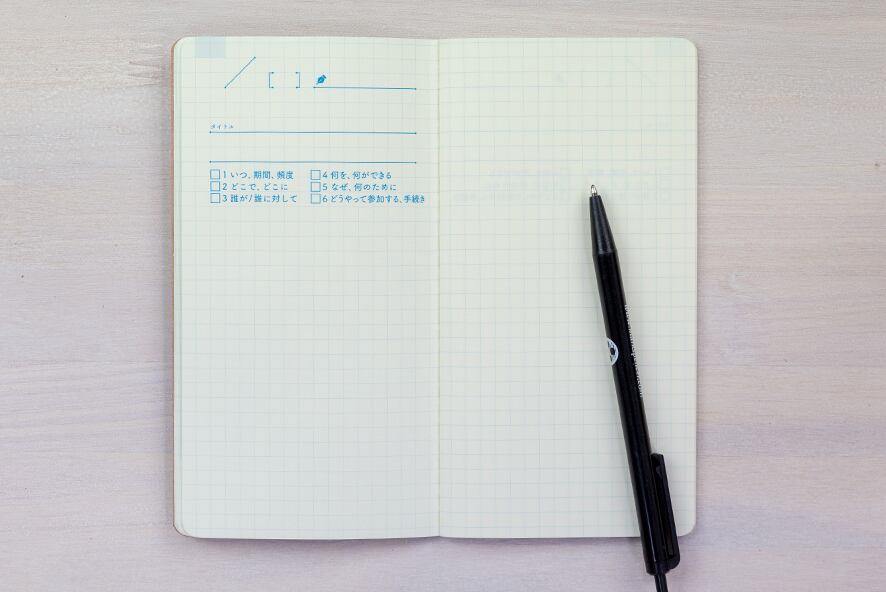 / [ ]
タイトル
□1 いつ、期間、頻度 □4 何を、何ができる
□2 どこで、どこに □5 なぜ、何のために
□3 誰が/誰に対して □6 どうやって参加する、手続き